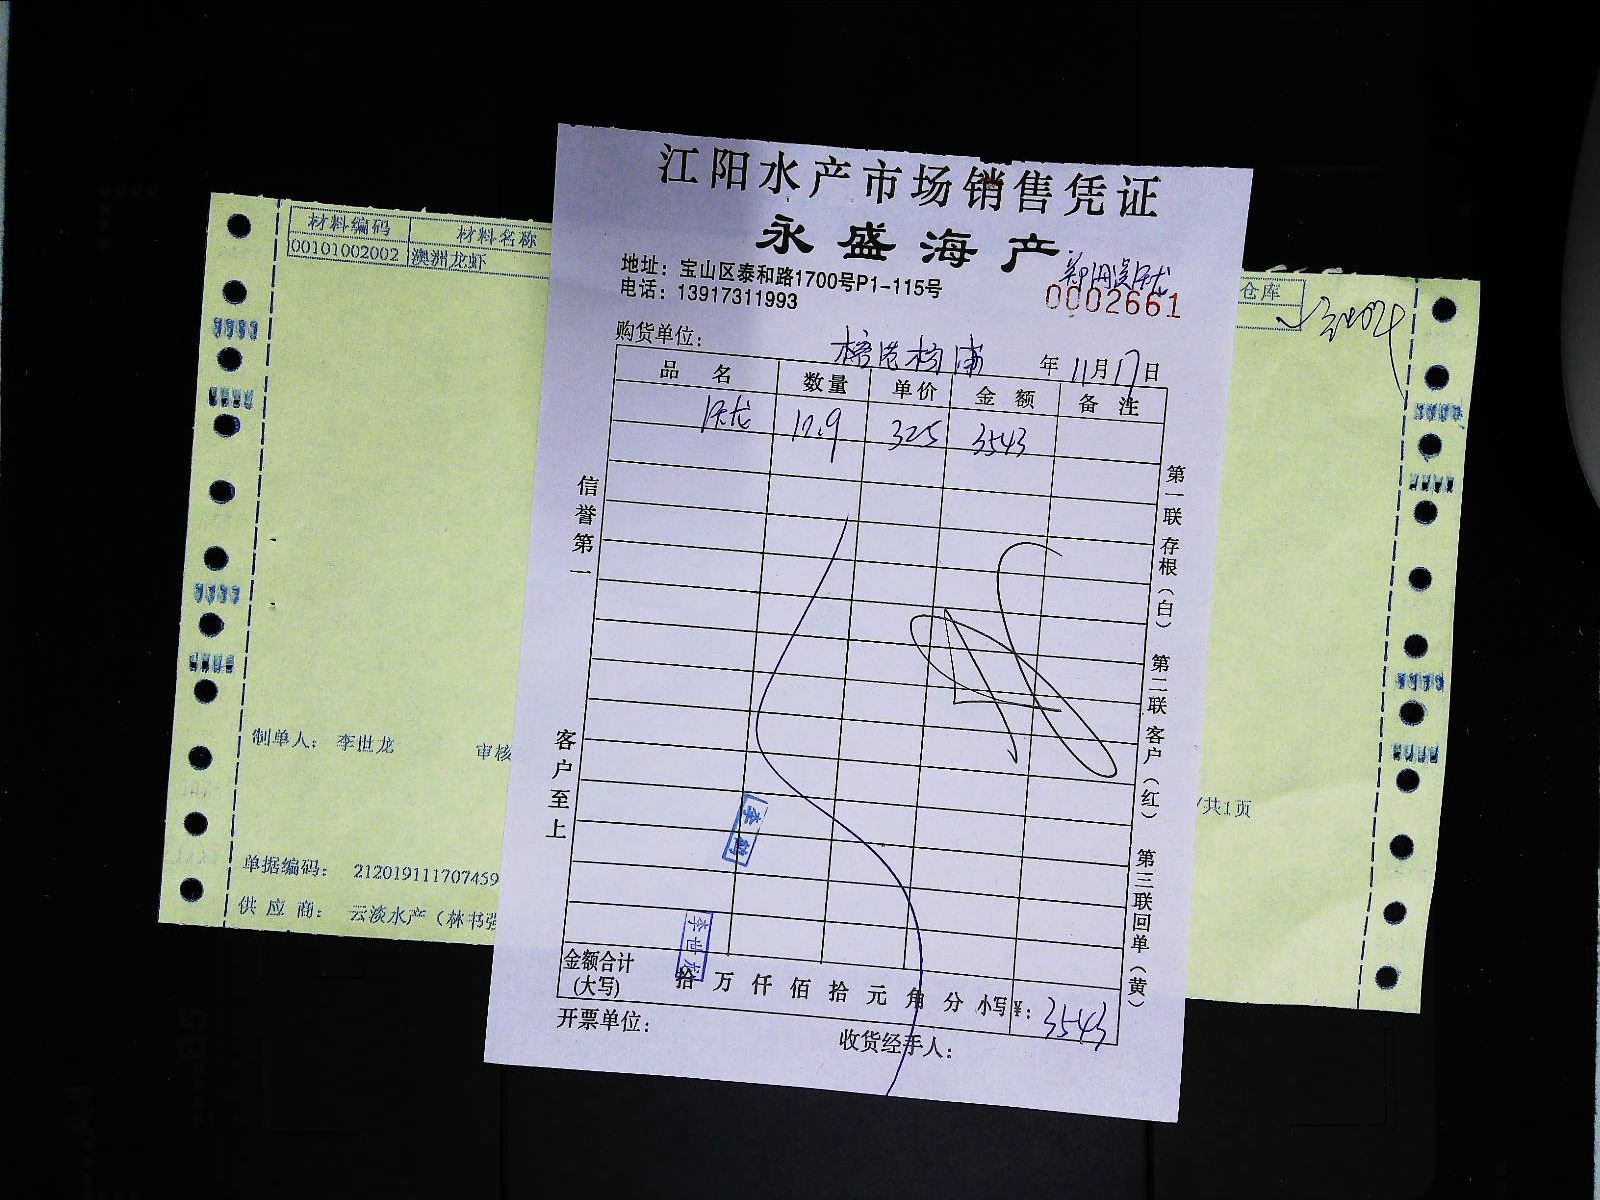 江阳水产市场销售凭证
永盛海产
地址：宝山区泰和路1700号P1-115号
电话：13917311993
0002661
购货单位：
年11月17日
品名 数量 单价 金额 备注
325 3543
信誉第一
客户至上
第一联存根（白） 第二联客户（红） 第三联回单（黄）
金额合计（大写） 拾万仟佰拾元角分 小写¥：3543
开票单位：
收货经手人：
李世龙
材料编码 材料名称
00101002002 澳洲龙虾
仓库
制单人： 李世龙 审核
/共1页
单据编码： 212019111707459
供应商： 云淡水产（林书强